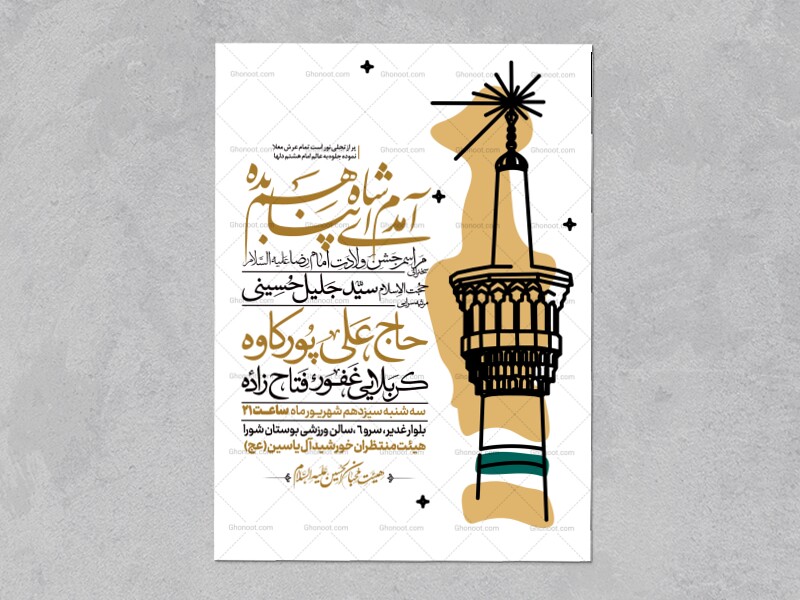 پر از تجلی نور است تمام عرش معلا
نموده جلوه به عالم امام هشتم دلها
آمدم ای شاه پناهم بده
مراسم جشن ولادت امام رضا علیه السلام
سخنرانی
حجت الاسلام سید جلیل حسینی
مدیحه سرایی
حاج علی پورکاوه
کربلایی غفور فتاح زاده
سه شنبه سیزدهم شهریور ماه ساعت ۲۱
بلوار غدیر، سرو ٦ ،سالن ورزشی بوستان شورا
هیئت منتظران خورشید آل یاسین (عج)
Ghonoot.com